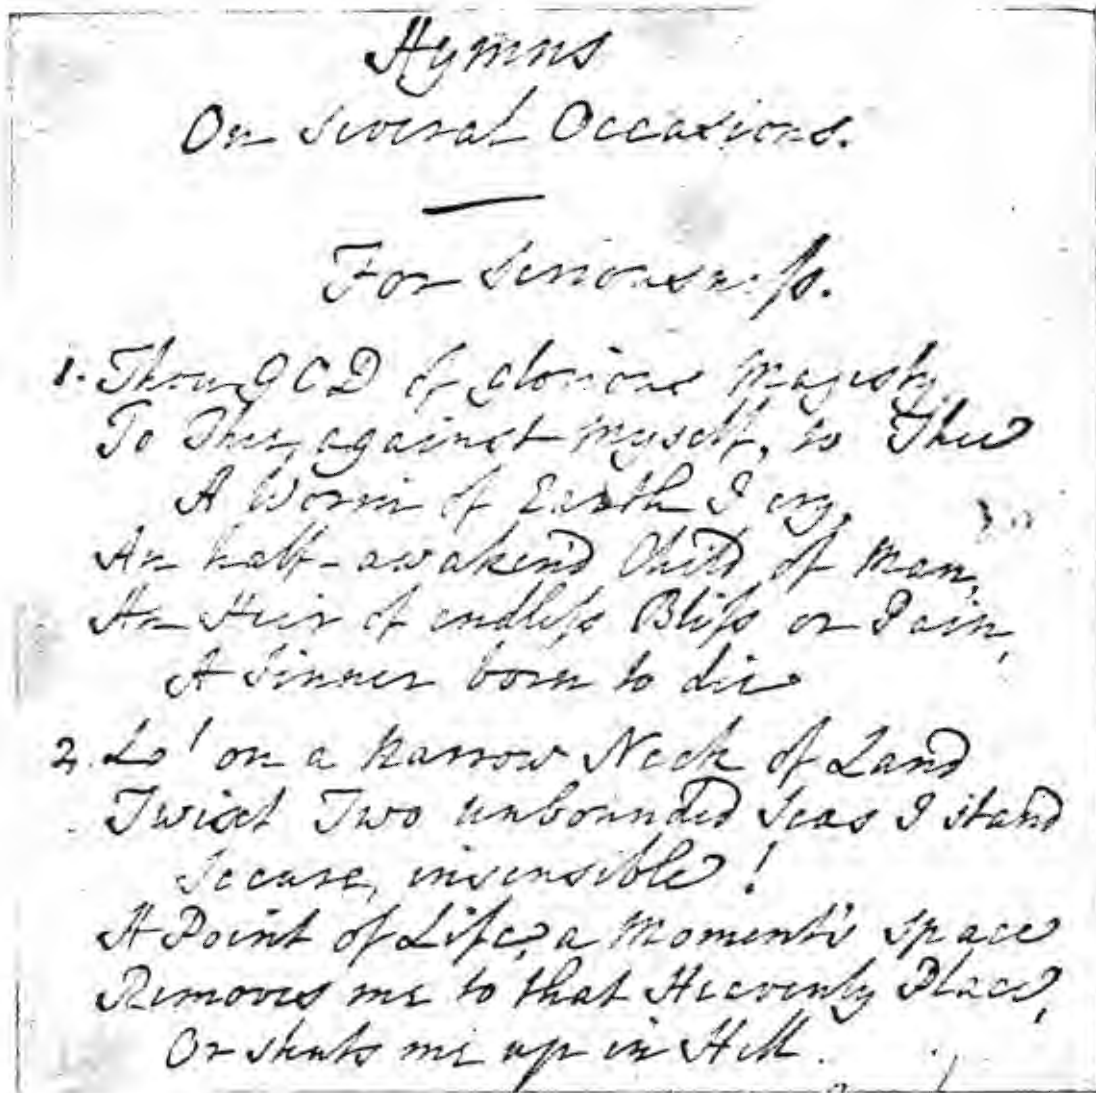 Hymns
On Several Occasions.
For Seriousness.
1. Thou GOD of glorious Majesty,
To Thee, against myself, to Thee
A Worm of Earth I cry,
An half-awakend Child of Man,
An Heir of endless Bliss or Pain,
A Sinner born to die
2. Lo! on a narrow Neck of Land
Twixt Two unbounded Seas I stand
Secure, insensible!
A Point of Life, a Moment's space
Removes me to that Heavenly Place,
Or shuts me up in Hell.